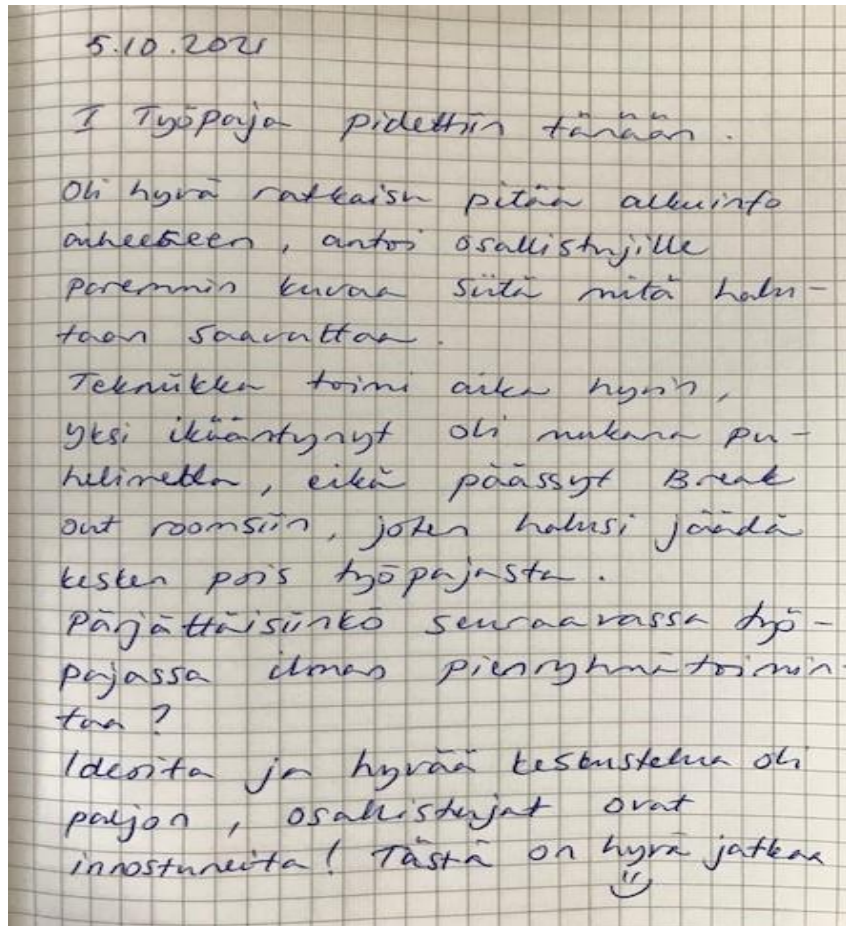 5.10.2021
I Työpaja pidettiin tänään.
Oli hyvä ratkaisu pitää alkuinfo
aiheeseen, antoi osallistujille
paremmin kuvaa siitä mitä halu-
taan saavuttaa.
Tekniikka toimi aika hyvin,
yksi ikääntynyt oli mukana pu-
helimella, eikä päässyt Break
out roomsiin, joten halusi jäädä
kesken pois työpajasta.
Pärjättäisiinkö seuraavassa työ-
pajassa ilman pienryhmätoimin-
taa?
Ideoita ja hyvää keskustelua oli
paljon, osallistujat ovat
innostuneita! Tästä on hyvä jatkaa